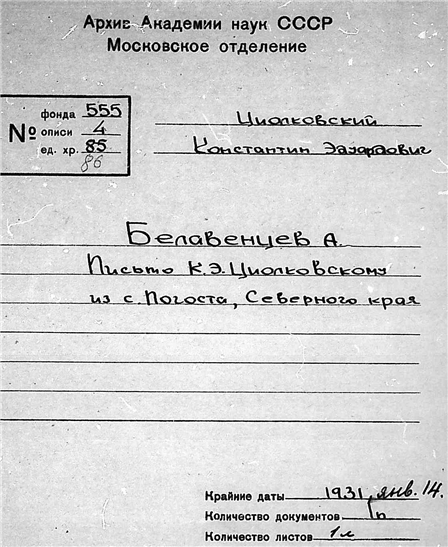 Архив Академии наук СССР
Московское отделение
№
фонда 555
описи 4
ед. хр. 85
86
Циолковский
Константин Эдуардович
Белавенцев А.
Письмо К.Э.Циолковскому
из с. Погоста, Северного края
Крайние даты 1931, янв. 14.
Количество документов 1п
Количество листов 1л